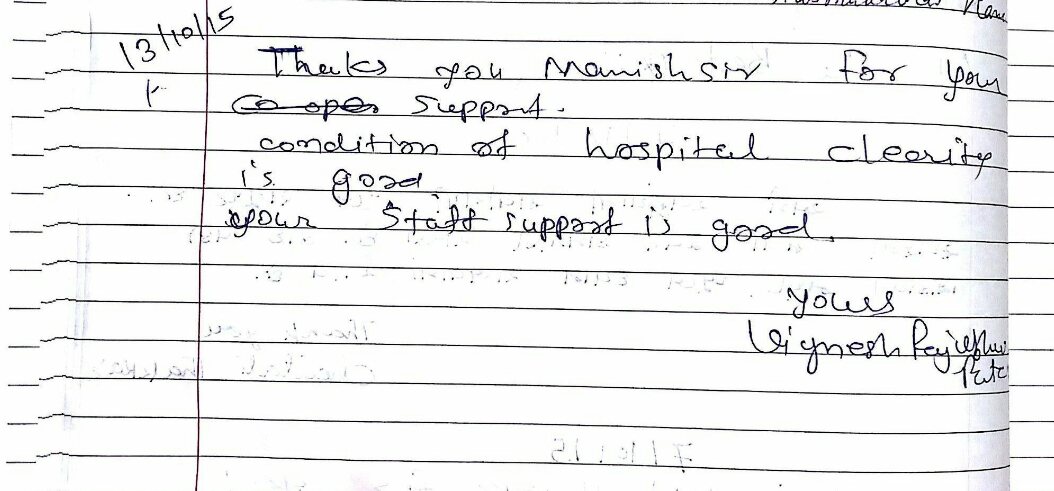 13/10/15
Thaks you Manish sir for your
Co oper support.
condition of hospital clearity
is good
your Staff support is good.
yours
Vignesh